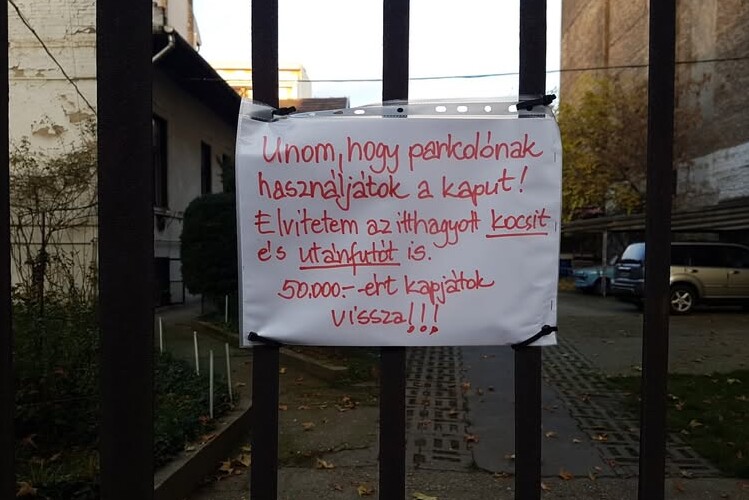 Unom, hogy parkolónak
használjátok a kaput!
Elvitetem az itthagyott kocsit
és utánfutót is.
50.000.- -ért kapjátok
vissza!!!